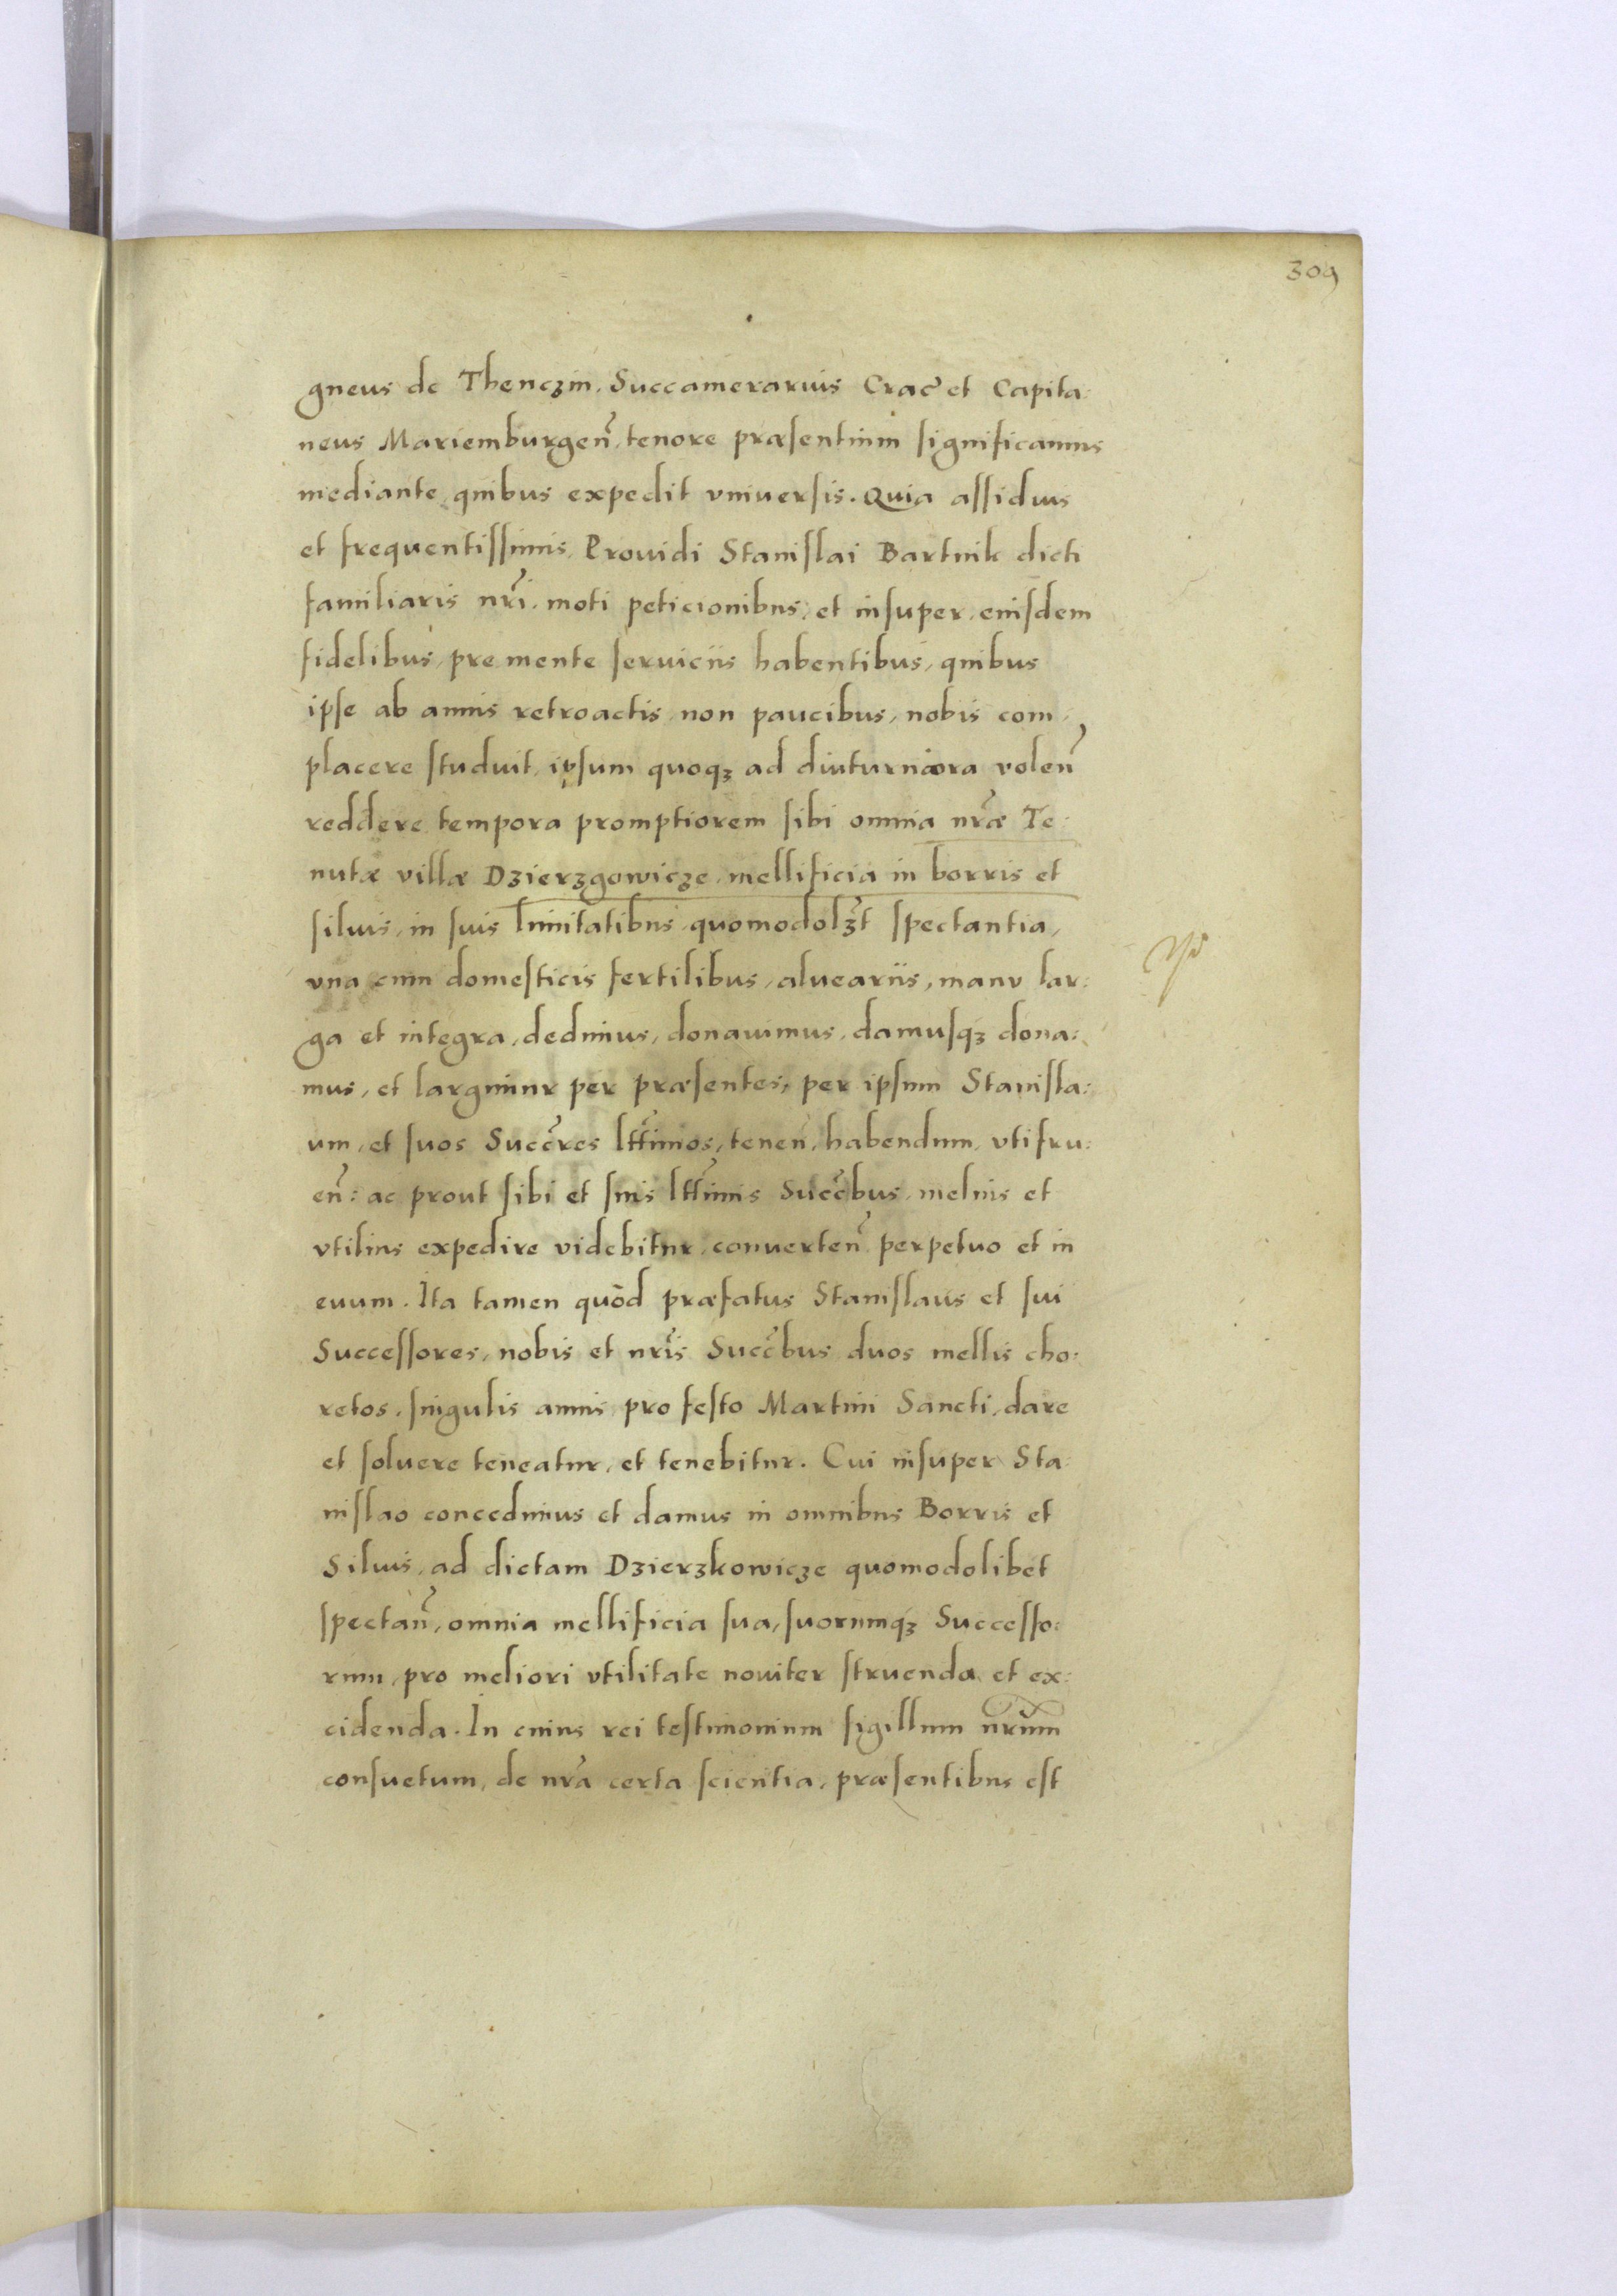 309
gneus de Thenczin. Succamerarius Crac̃ et Capita:
neus Mariemburgeñ, tenore præsentium significamus
mediante, quibus expedit vniuersis. Quia assiduis
et frequentissimis, Prouidi Stanislai Bartnik dicti
familiaris nr̃i, moti peticionibus, et insuper, eiusdem
fidelibus, pre mente seruiciis habentibus, quibus
ipse ab annis retroactis, non paucibus, nobis com,
placere studuit, ipsum quoqꝫ ad diuturniora voleñ
reddere tempora promptiorem sibi omnia nr̃æ Te:
nutæ villæ Dzierzgowicze, mellificia in borris et
siluis, in suis limitatibus, quomodolꝫt spectantia,
vna cum domesticis fertilibus, alueariis, manu lar:
ga et integra, dedimus, donauimus, damusqꝫ dona:
mus, et largimur per præsentes, per ipsum Stanisla:
um, et suos Succr̃es lt̃timos, teneñ, habendum, vtifru:
eñ: ac prout sibi et suis lt̃timis Succ̃bus, melius et
vtilius expedire videbitur, conuerteñ perpetuo et in
euum. Ita tamen quòd præfatus Stanislaus et sui
Successores, nobis et nr̃is Succ̃bus duos mellis cho:
retos, singulis annis pro festo Martini Sancti, dare
et soluere teneatur, et tenebitur. Cui insuper Sta:
nislao concedimus et damus in omnibus Borris et
Siluis, ad dictam Dzierzkowicze quomodolibet
spectañ, omnia mellificia sua, suorumqꝫ Successo:
rum, pro meliori vtilitate nouiter struenda et ex:
cidenda. In cuius rei testimonium sigillum nr̃um
consuetum, de nr̃a certa scientia, præsentibus est